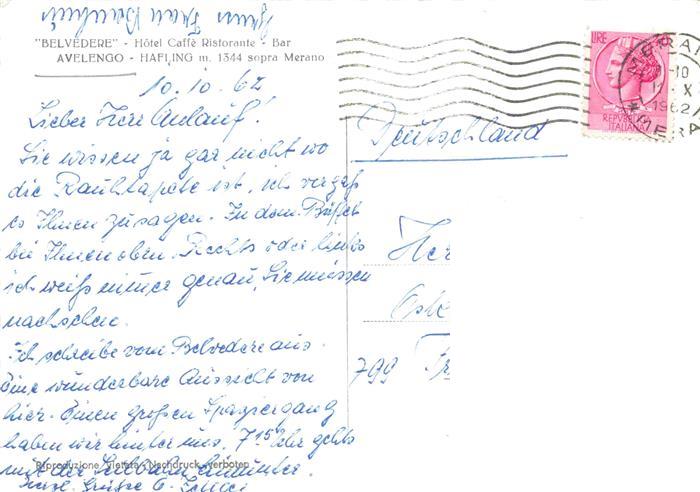 "BELVEDERE" - Hôtel Caffè Ristorante - Bar
AVELENGO - HAFLING m. 1344 sopra Merano
10.10.62
Lieber Herr Anlauf!
Sie wissen ja gar nicht wo
die Rauhtapete ist, ich vergaß
es Ihnen zu sagen. In dem Büffet
bei Ihnen oben. Rechts oder links
ich weiß nimmer genau, Sie müssen
nachsehen.
Ich schreibe vom Belvedere aus.
Eine wunderbare Aussicht von
hier. Einen großen Spaziergang
haben wir hinter uns. 7 15 Uhr gehts
mit der Seilbahn hinunter.
Herzl. Grüße
Riproduzione vietata - Nachdruck verboten
Gruss Frau
LIRE
REPVBBLICA
ITALIANA
MERAN
10
X
1962
MERA
Deutschland
Her
799